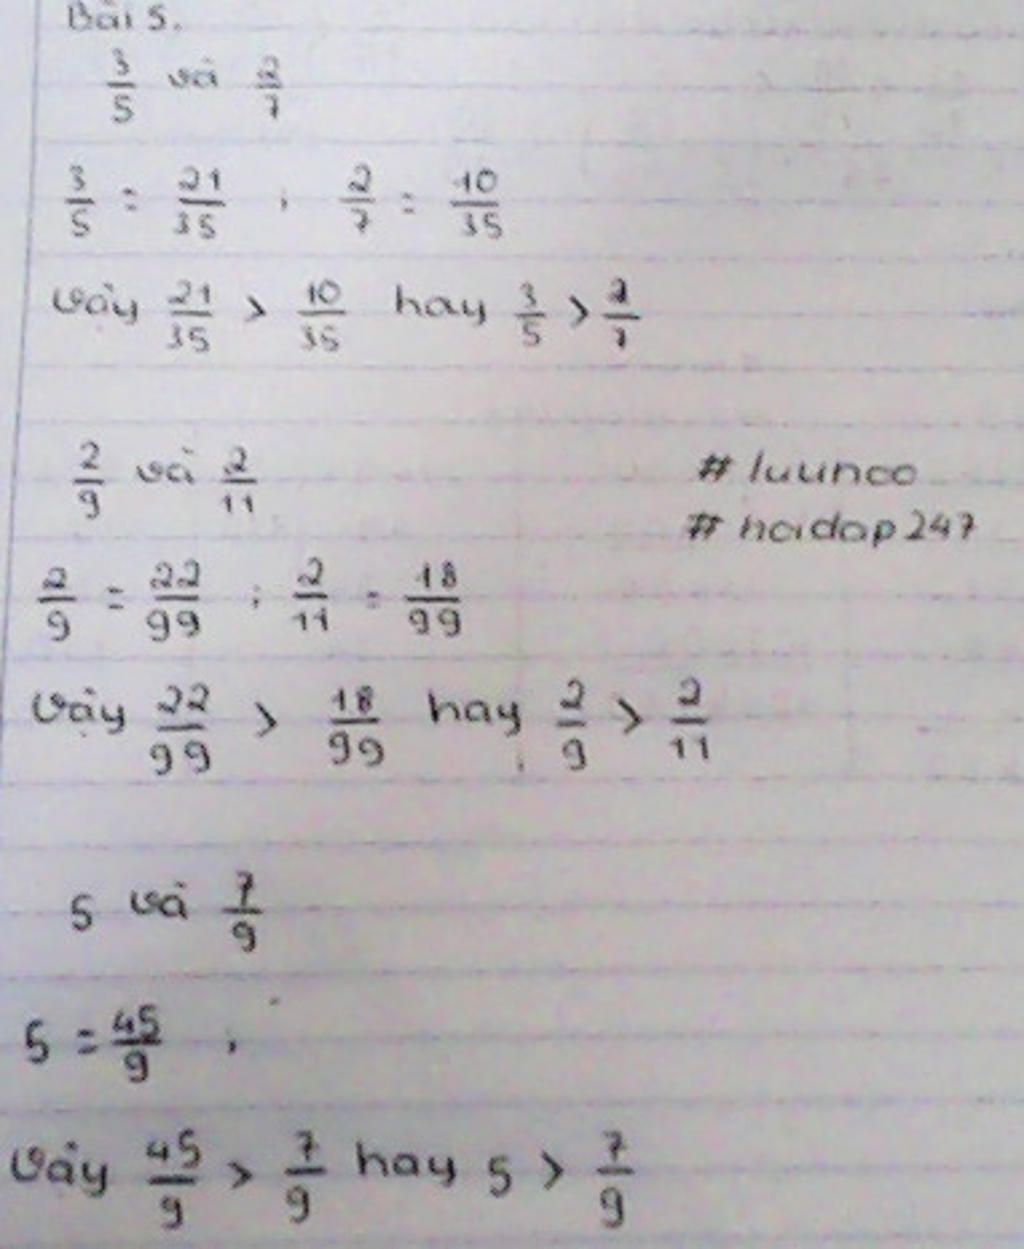 Bài 5.
3/5 và 2/7
3/5 = 21/35 , 2/7 = 10/35
Vậy 21/35 > 10/35 hay 3/5 > 2/7
2/9 và 2/11
# luunoo
# hoidap247
2/9 = 22/99 ; 2/11 = 18/99
Vậy 22/99 > 18/99 hay 2/9 > 2/11
5 và 7/9
5 = 45/9 ,
Vậy 45/9 > 7/9 hay 5 > 7/9